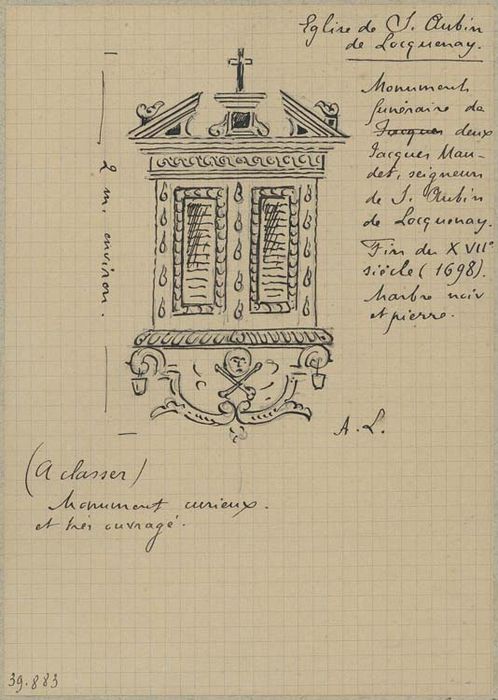 Eglise de S. Aubin
de Locquenay.
Monument
funéraire de
Jacques deux
Jacques Mau-
det, seigneurs
de S. Aubin
de Locquenay.
Fin du XVIIe
siècle (1698).
Marbre noir
et pierre.
2 m. environ.
A. L.
(A classer)
Monument curieux.
et très ouvragé.
39.883